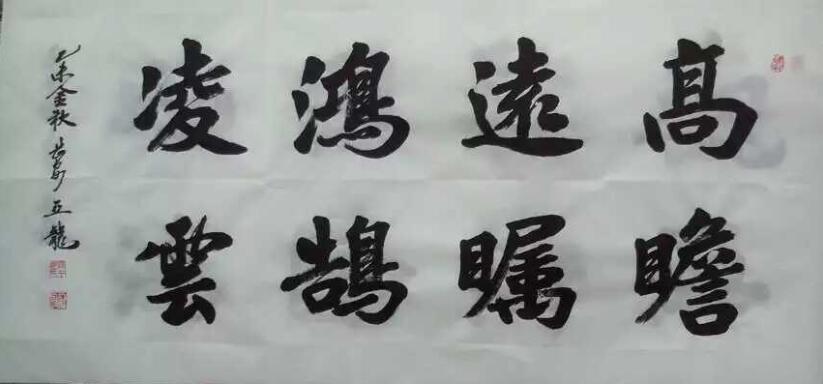 高瞻
遠瞩
鴻鵠
凌雲
乙未金秋 五龍